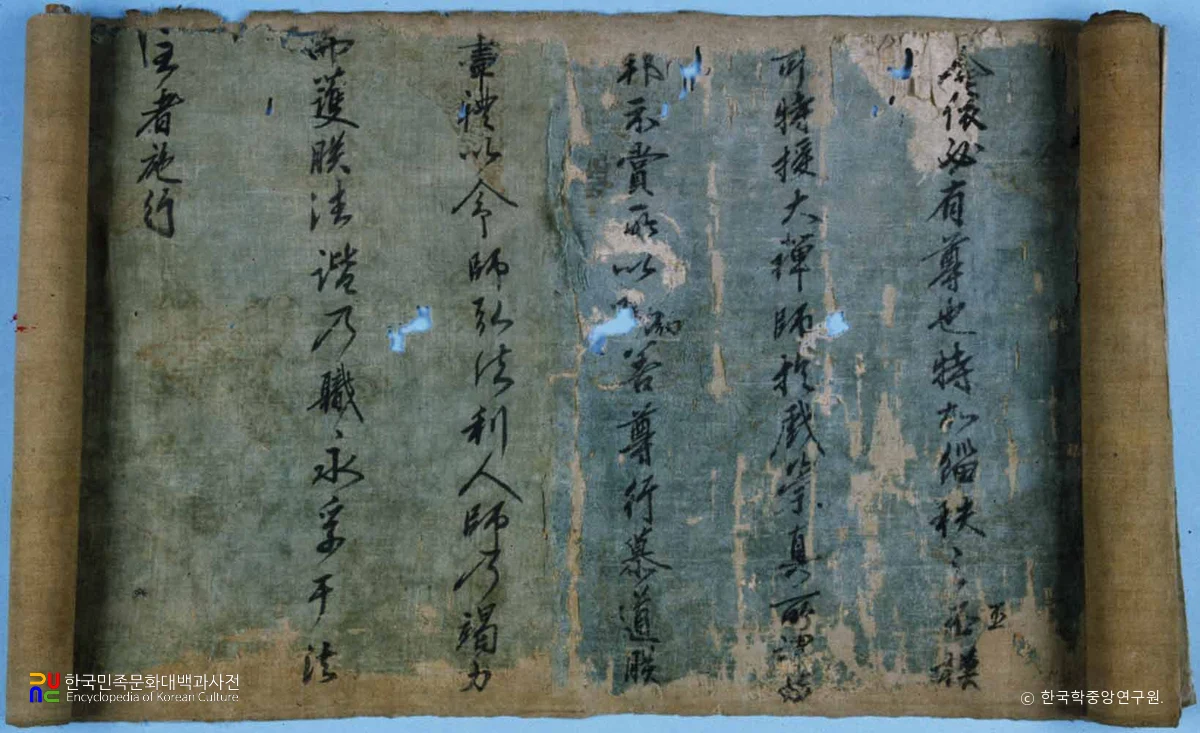 僉依必有尊也特加緇秩
亞
可特授大禪師於戲崇真所
邦示賞所以善尊行慕道朕
盡禮以令師弘法利人師乃竭力
而護朕法諧乃職永孚于法
主者施行
한국민족문화대백과사전
Encyclopedia of Korean Culture
ⓒ 한국학중앙연구원.